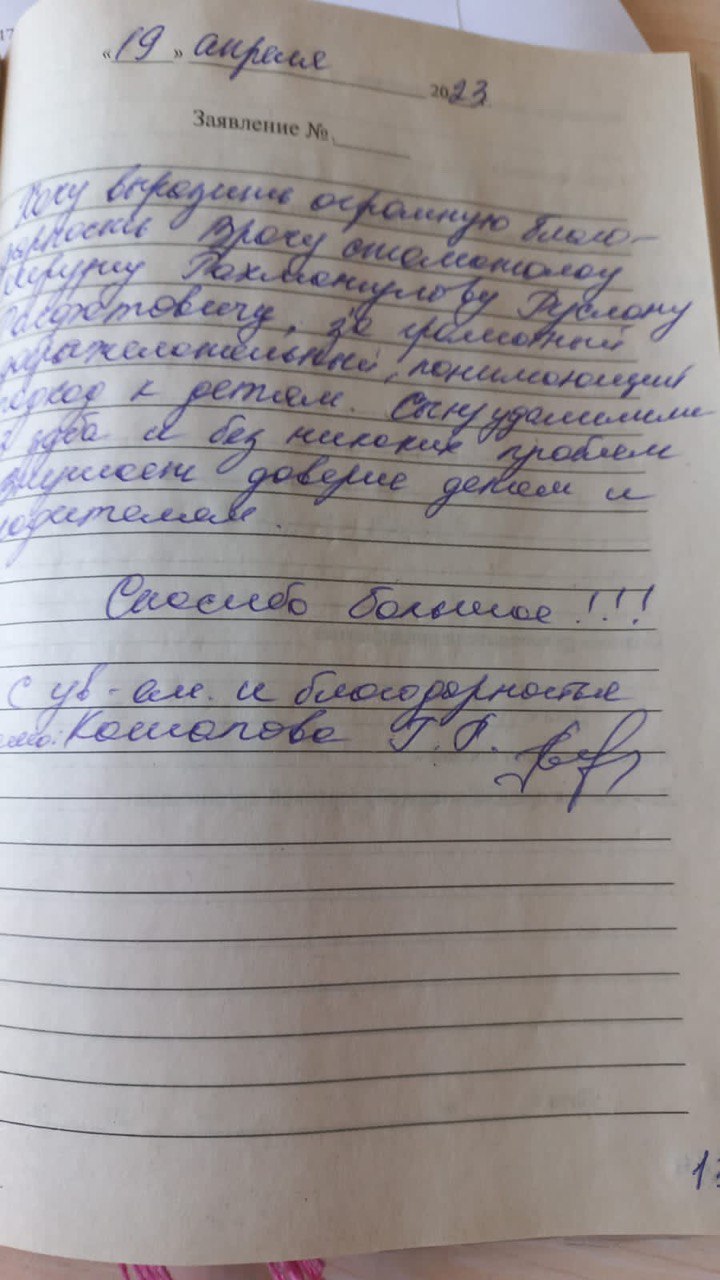 « 19 » апреля 2023
Заявление №
Хочу выразить огромную благо-
дарность Врачу стоматологу
хирургу Рахманкулову Руслану
за грамотный
доброжелательный, понимающий
подход к детям. Сыну удалили
зуба и без никаких проблем
внушает доверие детям и
родителям.
Спасибо большое!!!
С ув-ем. и благодарностью
Г.Г.